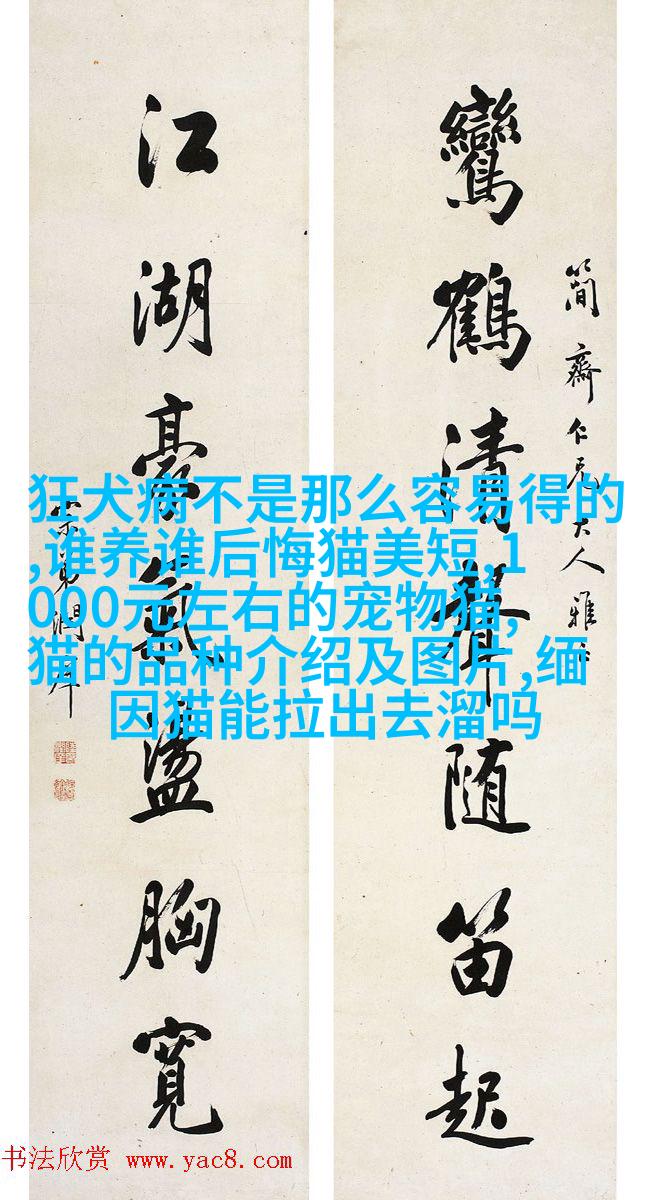 簡齋仁兄大人雅
鸞鶴清聲随笛起
江湖豪氣盪胸寬
弟潤庠
狂犬病不是那么容易得的
,谁养谁后悔猫美短,1
000元左右的宠物猫,
猫的品种介绍及图片,缅
因猫能拉出去溜吗
书法欣赏 www.yac8.com